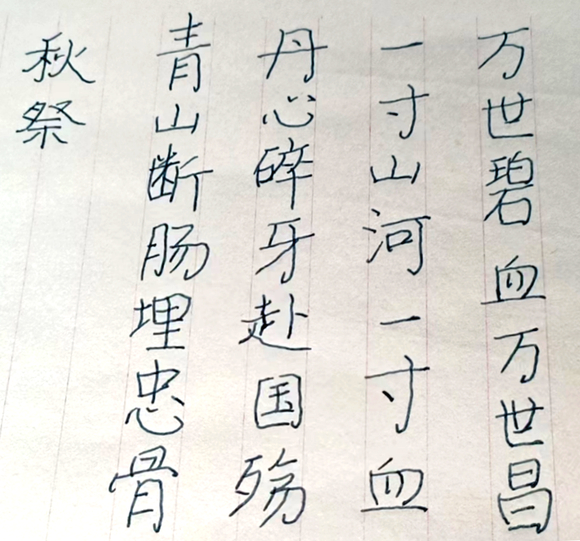 万世碧血万世昌
一寸山河一寸血
丹心碎牙赴国殇
青山断肠埋忠骨
秋祭